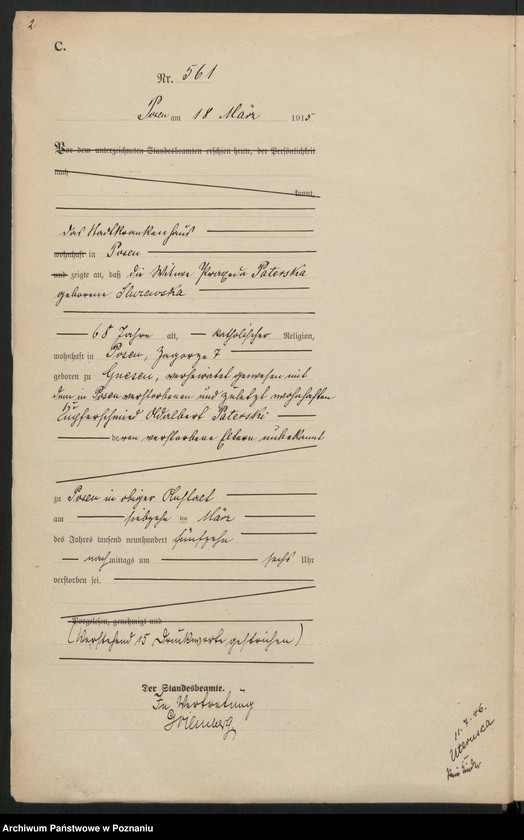 2
C.
Nr. 561
Posen am 18 März 1915
Vor dem unterzeichneten Standesbeamten erschien heute, der Persönlichkeit
nach
kannt,
das Stadtkrankenhaus
wohnhaft in Posen
und zeigte an, daß die Witwe Praxeda Paterska
geborene
68 Jahre alt, katholischer Religion,
wohnhaft in Posen, Zagorze 7
geboren zu Gnesen, verheiratet gewesen mit
dem in Posen verstorbenen und zuletzt wohnhaften
Kupferschmied Adalbert Paterski
deren verstorbene Eltern unbekannt
zu Posen in obiger Anstalt
am siebzehn ten März
des Jahres tausend neunhundert fünfzehn
nachmittags um sechs Uhr
verstorben sei.
Vorgelesen, genehmigt und
(Vorstehend 15 Druckworte gestrichen)
Der Standesbeamte.
In Vertretung
11. 7. 46.
Archiwum Państwowe w Poznaniu